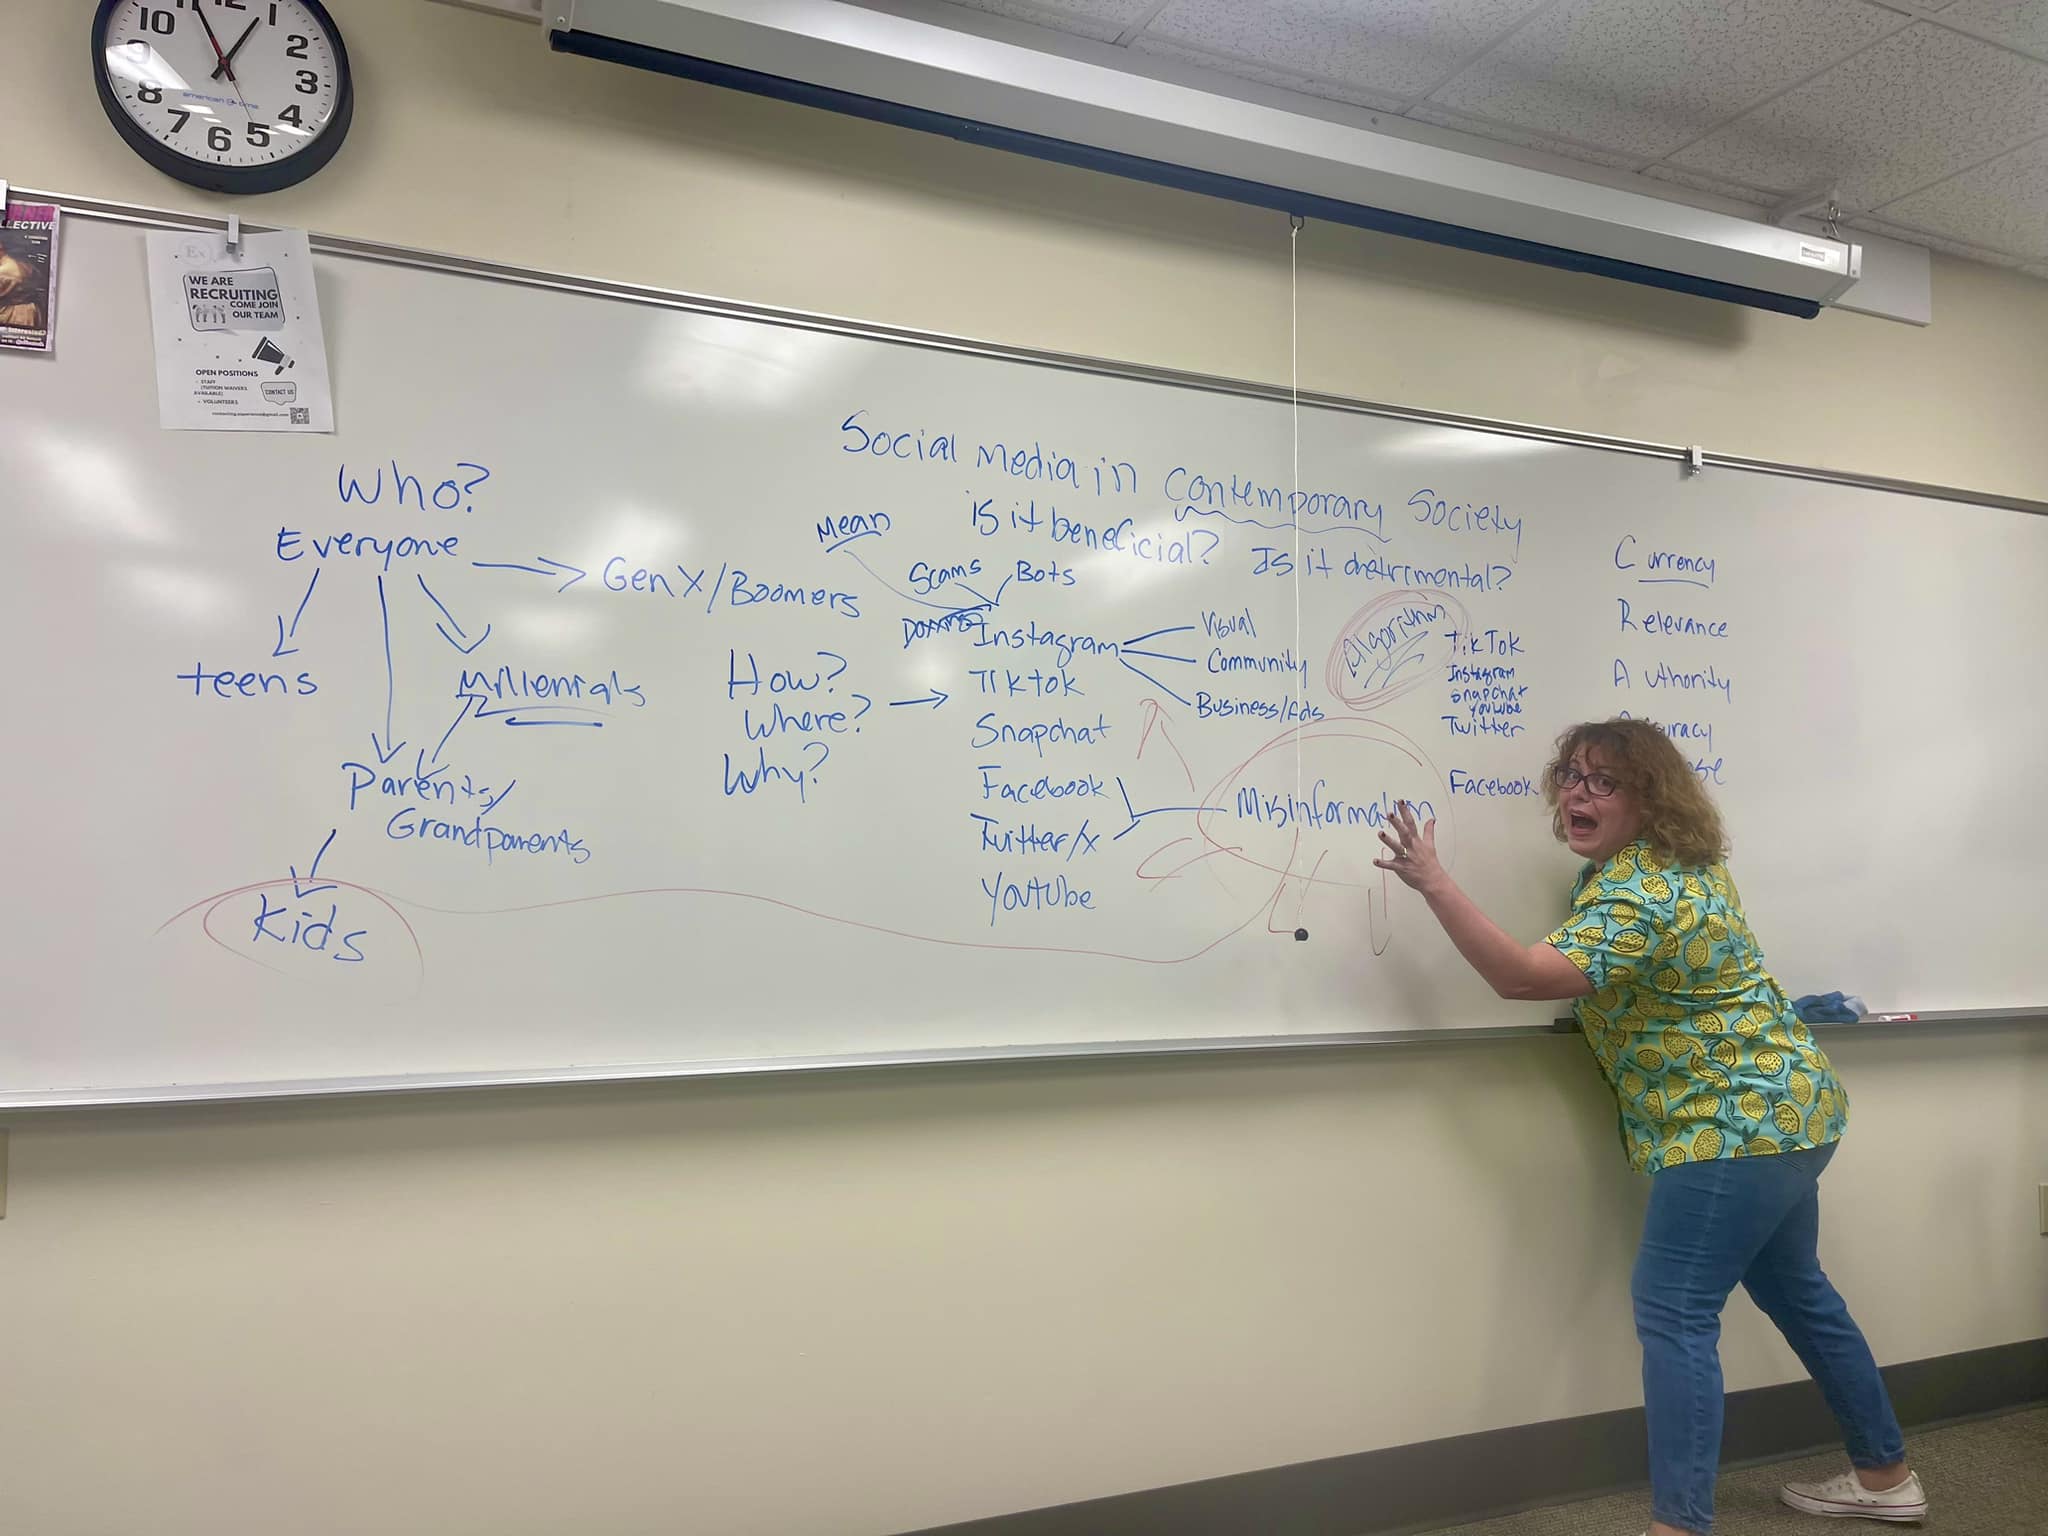 10
11
12
1
2
9
3
8
4
7
6
5
american time
LLECTIVE
WE ARE
RECRUITING
COME JOIN
OUR TEAM
OPEN POSITIONS
STAFF
(TUITION WAIVERS
AVAILABLE)
VOLUNTEERS
CONTACT US
Social Media in Contemporary Society
is it beneficial? Is it detrimental?
Who?
Everyone
GenX/Boomers
teens
Millenials
Parents/
Grandparents
Kids
How?
Where?
Why?
Mean
Scams
Bots
Doxxing
Instagram
TikTok
Snapchat
Facebook
Twitter/X
Youtube
Visual
Community
Business/Ads
Misinformation
Algorithm
TikTok
Instagram
Snapchat
Youtube
Twitter
Facebook
Currency
Relevance
Authority